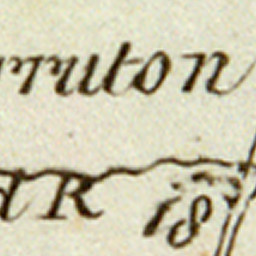 rruton
d R 18